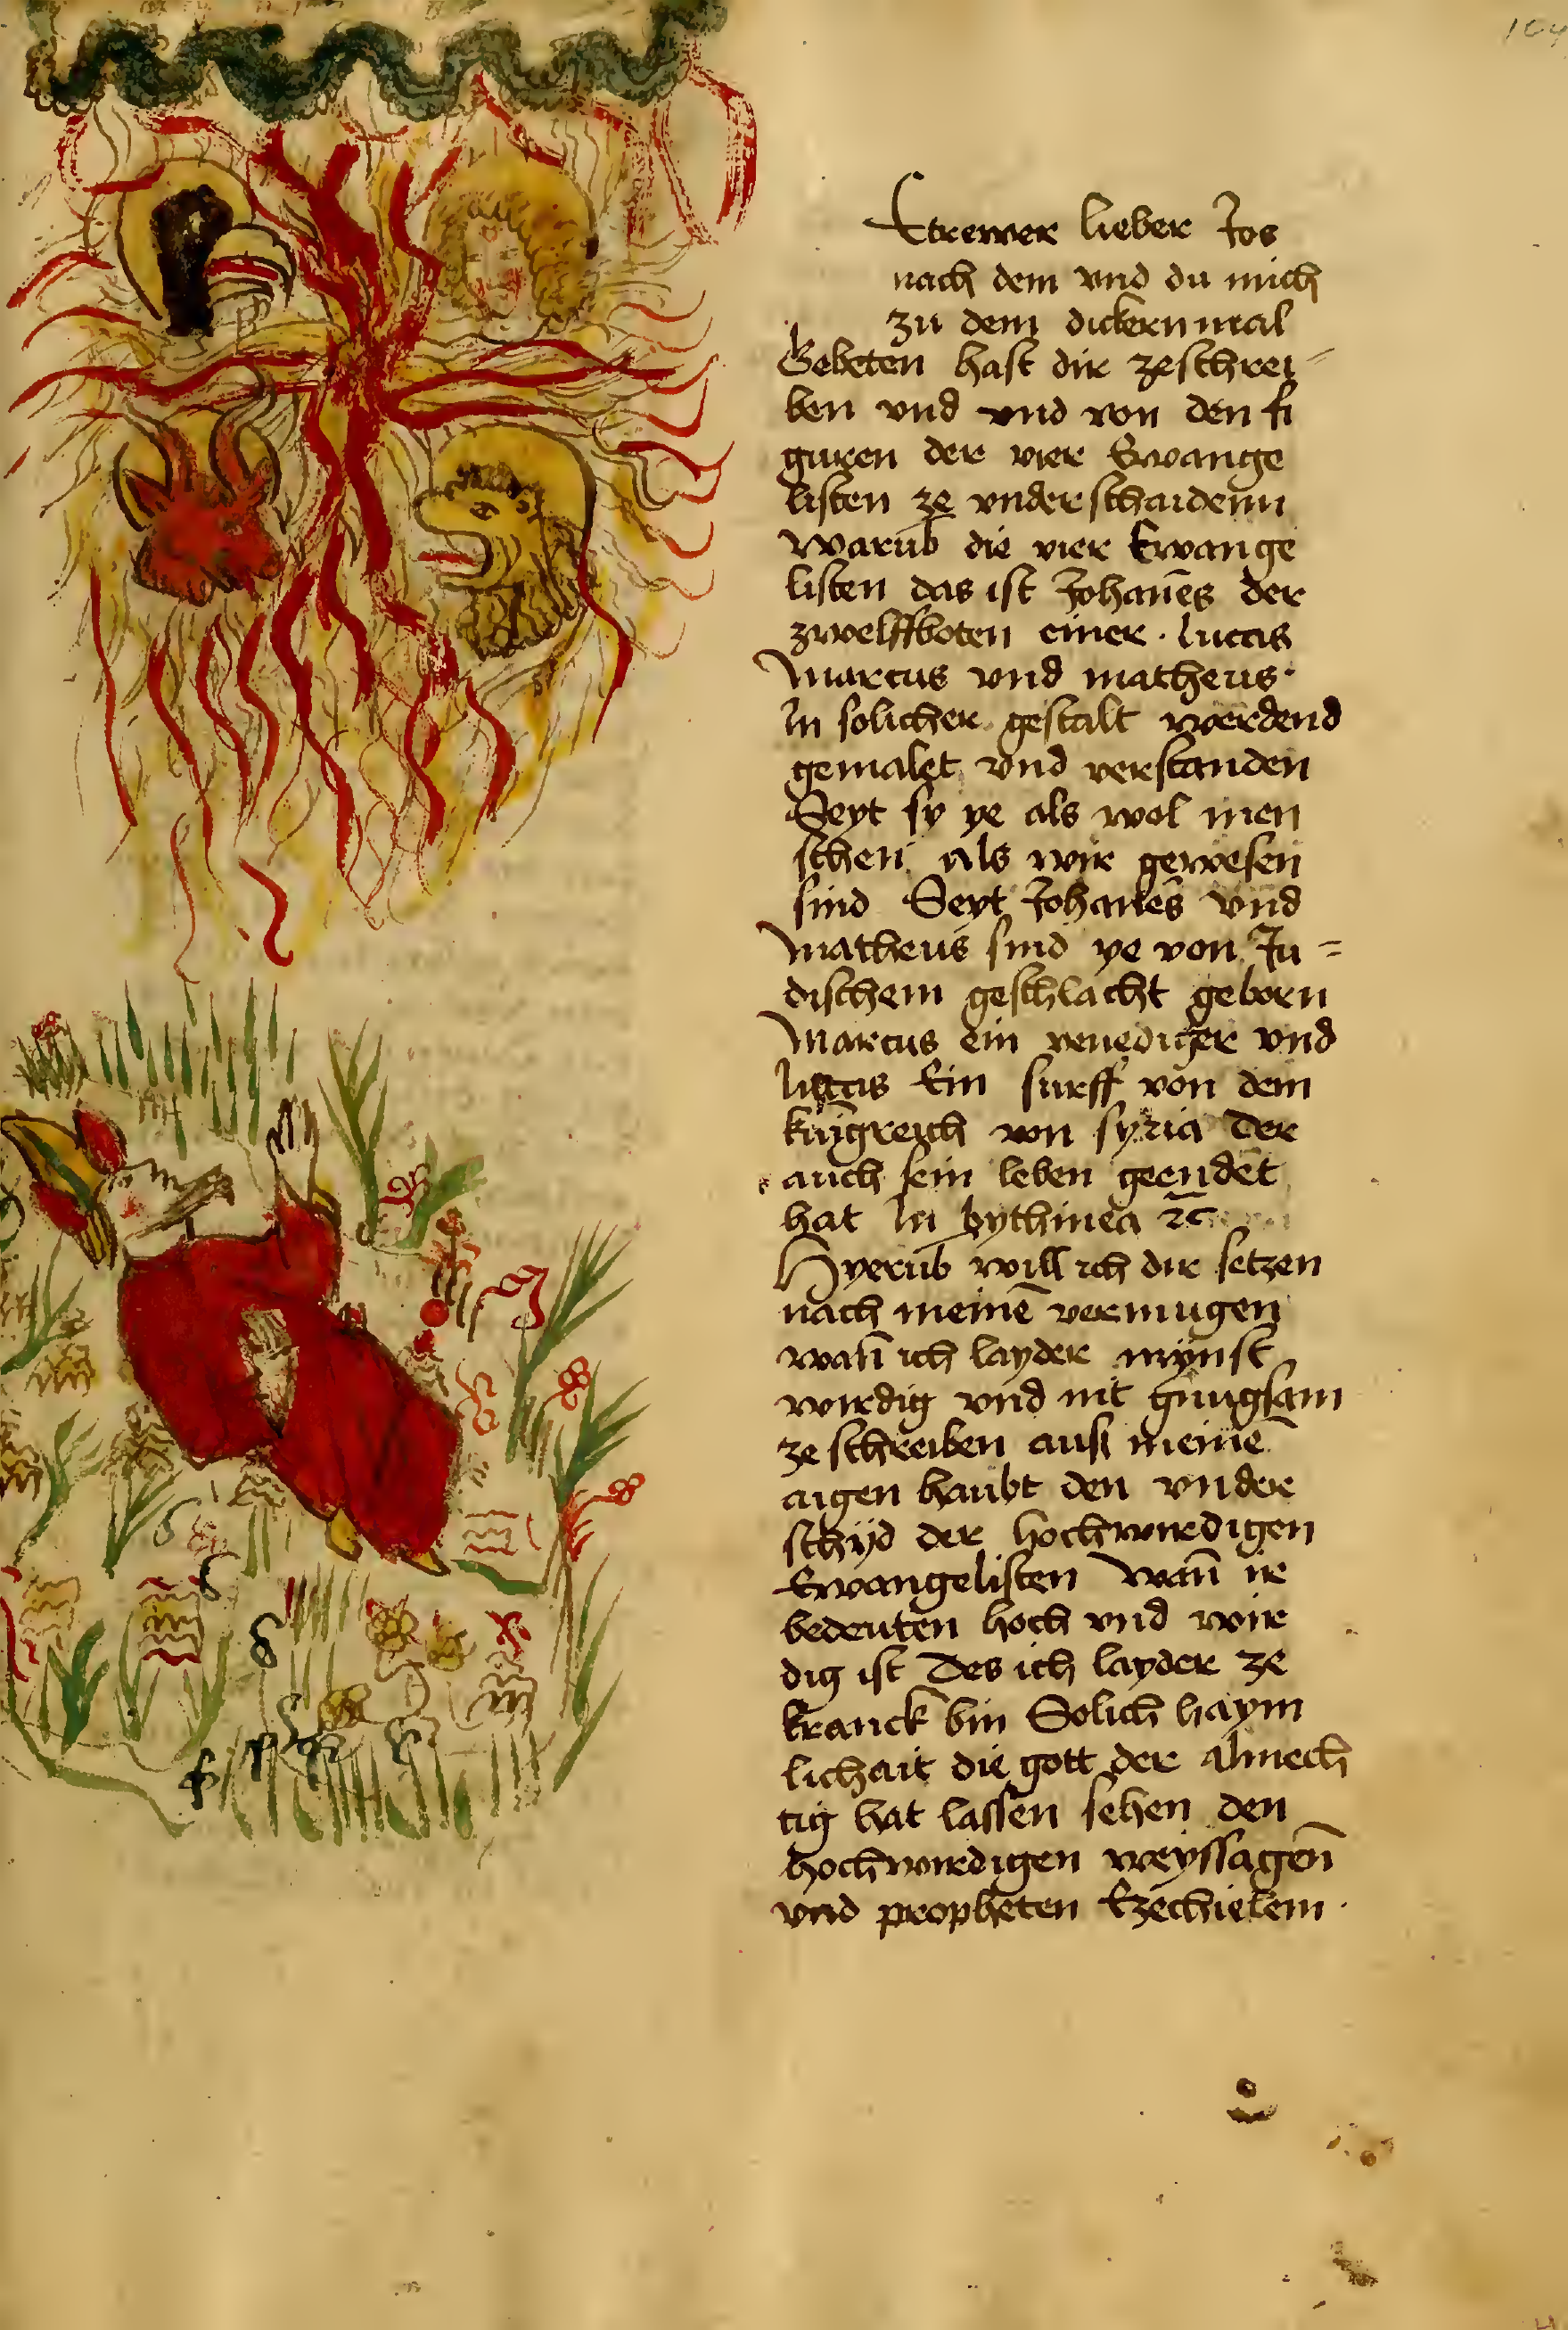 104
Etrewer lieber Jos
nach dem vnd du mich
zu dem dickern mal
Gebeten hast dir zeschrei-
ben vnd vnd von den fi
guren der vier Ewange
listen ze vnderschaidenn
Warūb die vier Ewange
listen das ist Johañes der
zwelffboten einer · lucas
Marcus vnd matheus·
In solicher gestalt werdend
gemalet vnd verstanden
Seyt sy ye als wol men
schen als wir gewesen
sind Seyt Johañes vnd
Matheus sind ye von Ju=
dischem geschlacht geborn
Marcus ein venediger vnd
lucas Ein surff von dem
kungreich von syria Der
auch sein leben geendet
hat In bythinea ⁊c̄
Hyerūb will ich dir setzen
nach meinē vermugen
wañ ich layder mynst
wirdig vnd nit gnugsam
ze schreiben auß meinē
aigen haubt den vnder
schyd der hochwirdigen
Ewangelisten Wañ ir
bedeuten hoch vnd wir
dig ist Des ich layder ze
kranck bin Solich haym
lichait die gott der almech
tig hat lassen sehen den
hochwirdigen weyssagen̄
vnd propheten Ezechielem ·